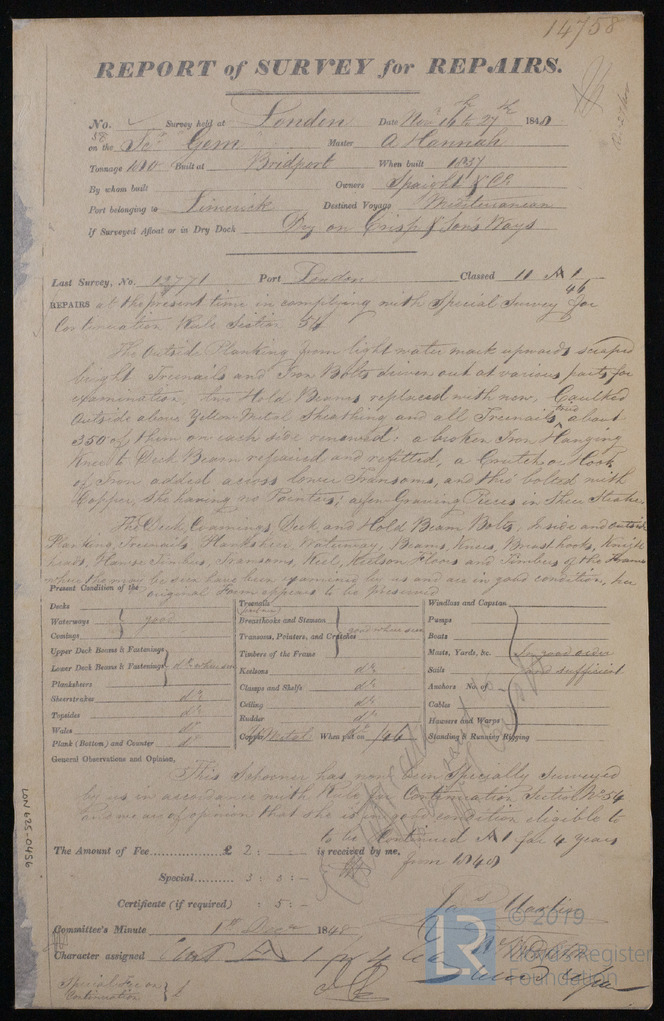 14758
REPORT of SURVEY for REPAIRS.
No. Survey held at London Date Nov 16th to 27th 1848
58
on the Scr Gem Master A Hannah
Tonnage 100 Built at Bridport When built 1837
By whom built Owners Spaight & Co
Port belonging to Limerick Destined Voyage Mediterranean
If Surveyed Afloat or in Dry Dock Dry on Crisp & Son's Ways
Last Survey, No. 12771 Port London Classed 11 A 1
46
REPAIRS at the present time in complying with Special Survey for
Continuation Rule Section 54
The Outside Planking from light water mark upwards scraped
bright Treenails and Iron Bolts driven out at various parts for
examination, two Hold Beams replaced with new, Caulked
Outside above Yellow Metal Sheathing and all Treenails tried about
350 of them on each side renewed: a broken Iron Hanging
Knee to Deck Beam repaired and refitted, a Crutch or Hook
of Iron added across lower Transoms, and this bolted with
Copper, she having no Pointers; a few Graving Pieces in Sheer Strakes.
The Deck, Coamings, Deck and Hold Beam Bolts, Inside and outside
Planking, Treenails, Planksheer Waterway, Beams, Knees, Breasthooks, Knight
heads, Hawse Timbers, Transoms, Keel, Keelson Floors and Timbers of the Frame
where they may be seen have been examined by us and are in good condition, her
original Form appears to be preserved
Present Condition of the
Decks
Waterways } good
Comings
Upper Deck Beams & Fastenings
Lower Deck Beams & Fastenings } do where seen
Plansheers
Sheerstrakes do
Topsides do
Wales do
Plank (Bottom) and Counter do
Treenails
Breasthooks and Stemson
Transoms, Pointers, and Crutches } good where seen
Timbers of the Frame
Keelsons do
Clamps and Shelfs do
Ceiling do
Rudder do
Copper Y Metal When put on /46
Windlass and Capstan
Pumps
Boats
Masts, Yards, &c. } In good order
Sails and sufficient
Anchors No. of
Cables
Hawsers and Warps
Standing & Running Rigging
General Observations and Opinion,
This Schooner has now been Specially Surveyed
by us in accordance with Rule for Continuation Section No 54
and we are of opinion that she is in good condition eligible to
to be Continued A1 for 4 years
from 1848
The Amount of Fee £ 2 : - : - is received by me,
Special 3 : 3 : -
Certificate (if required) : 5 : -
Jas Martin
Committee's Minute 1st Decr 1848
Character assigned A 1 for 4
Special Fee on
Continuation } £
LON 625-0456
LR
© 2019
Lloyd's Register
Foundation